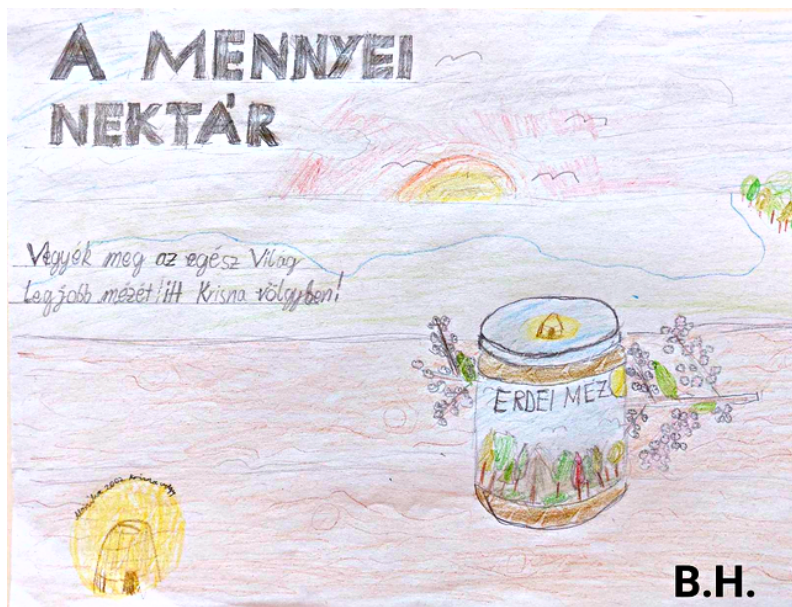 A MENNYEI
NEKTÁR
Vegyék meg az egész Világ
legjobb mézét itt Krisna völgyben!
ERDEI MÉZ
Krisna völgy
B.H.